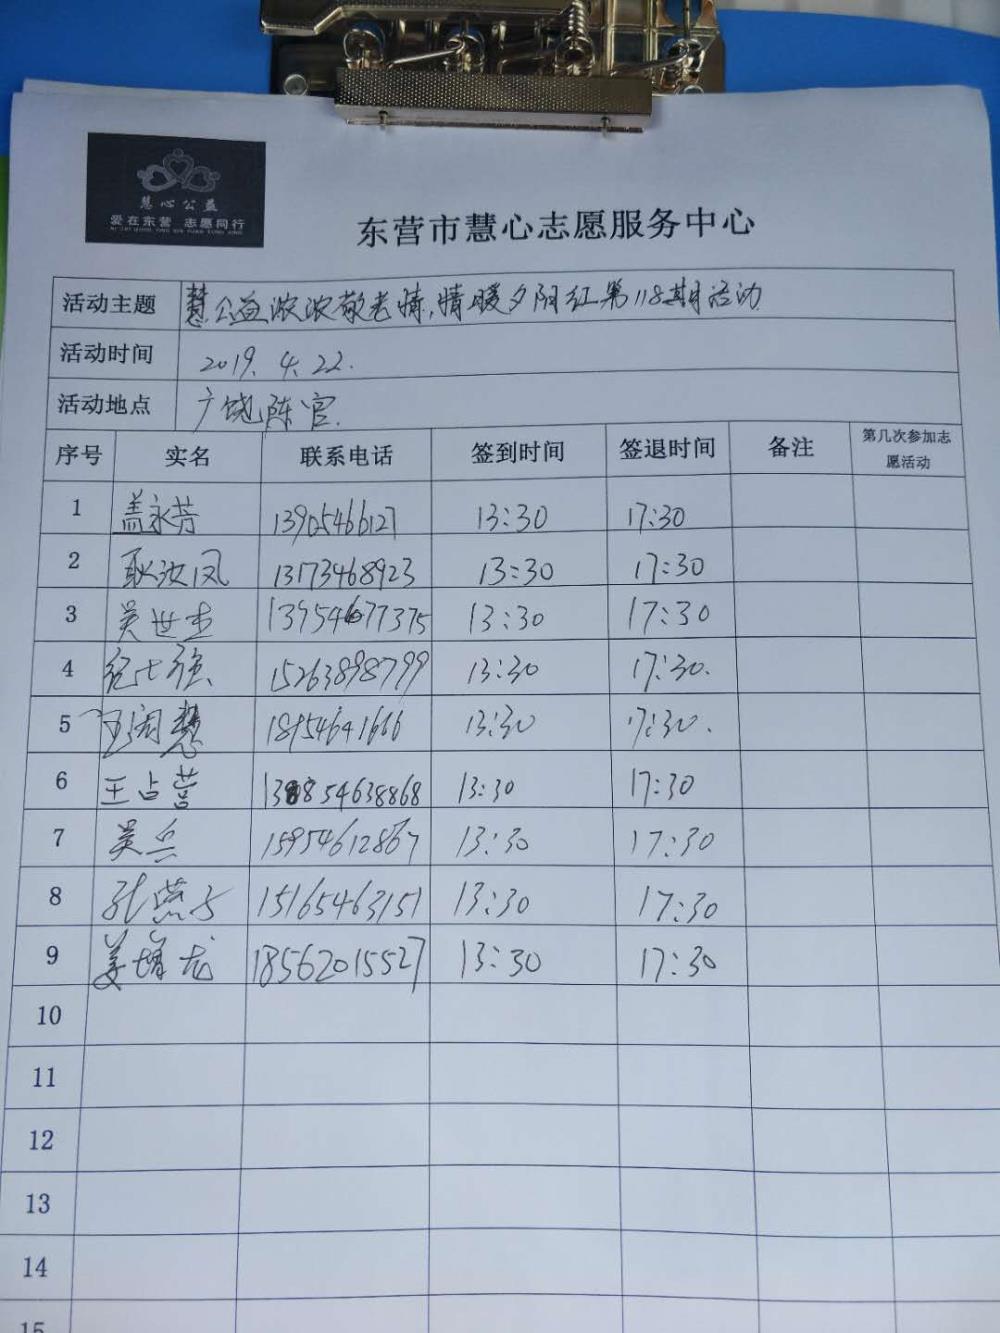 慧心公益
爱在东营 志愿同行
东营市慧心志愿服务中心
活动主题 慧公益浓浓敬老情,情暖夕阳红第118期活动
活动时间 2019.4.22.
活动地点 广饶陈官.
序号 实名 联系电话 签到时间 签退时间 备注 第几次参加志愿活动
1 盖永芳 13905466127 13:30 17:30
2 耿汝凤 13173468923 13:30 17:30
3 吴世杰 13954677375 13:30 17:30
4 纪七强 15263898799 13:30 17:30.
5 王闰慧 18954641666 13:30 17:30.
6 王占营 13854638868 13:30 17:30
7 吴兵 15954612867 13:30 17:30
8 张燕子 15165463151 13:30 17:30
9 姜增龙 18562015527 13:30 17:30
10
11
12
13
14
15